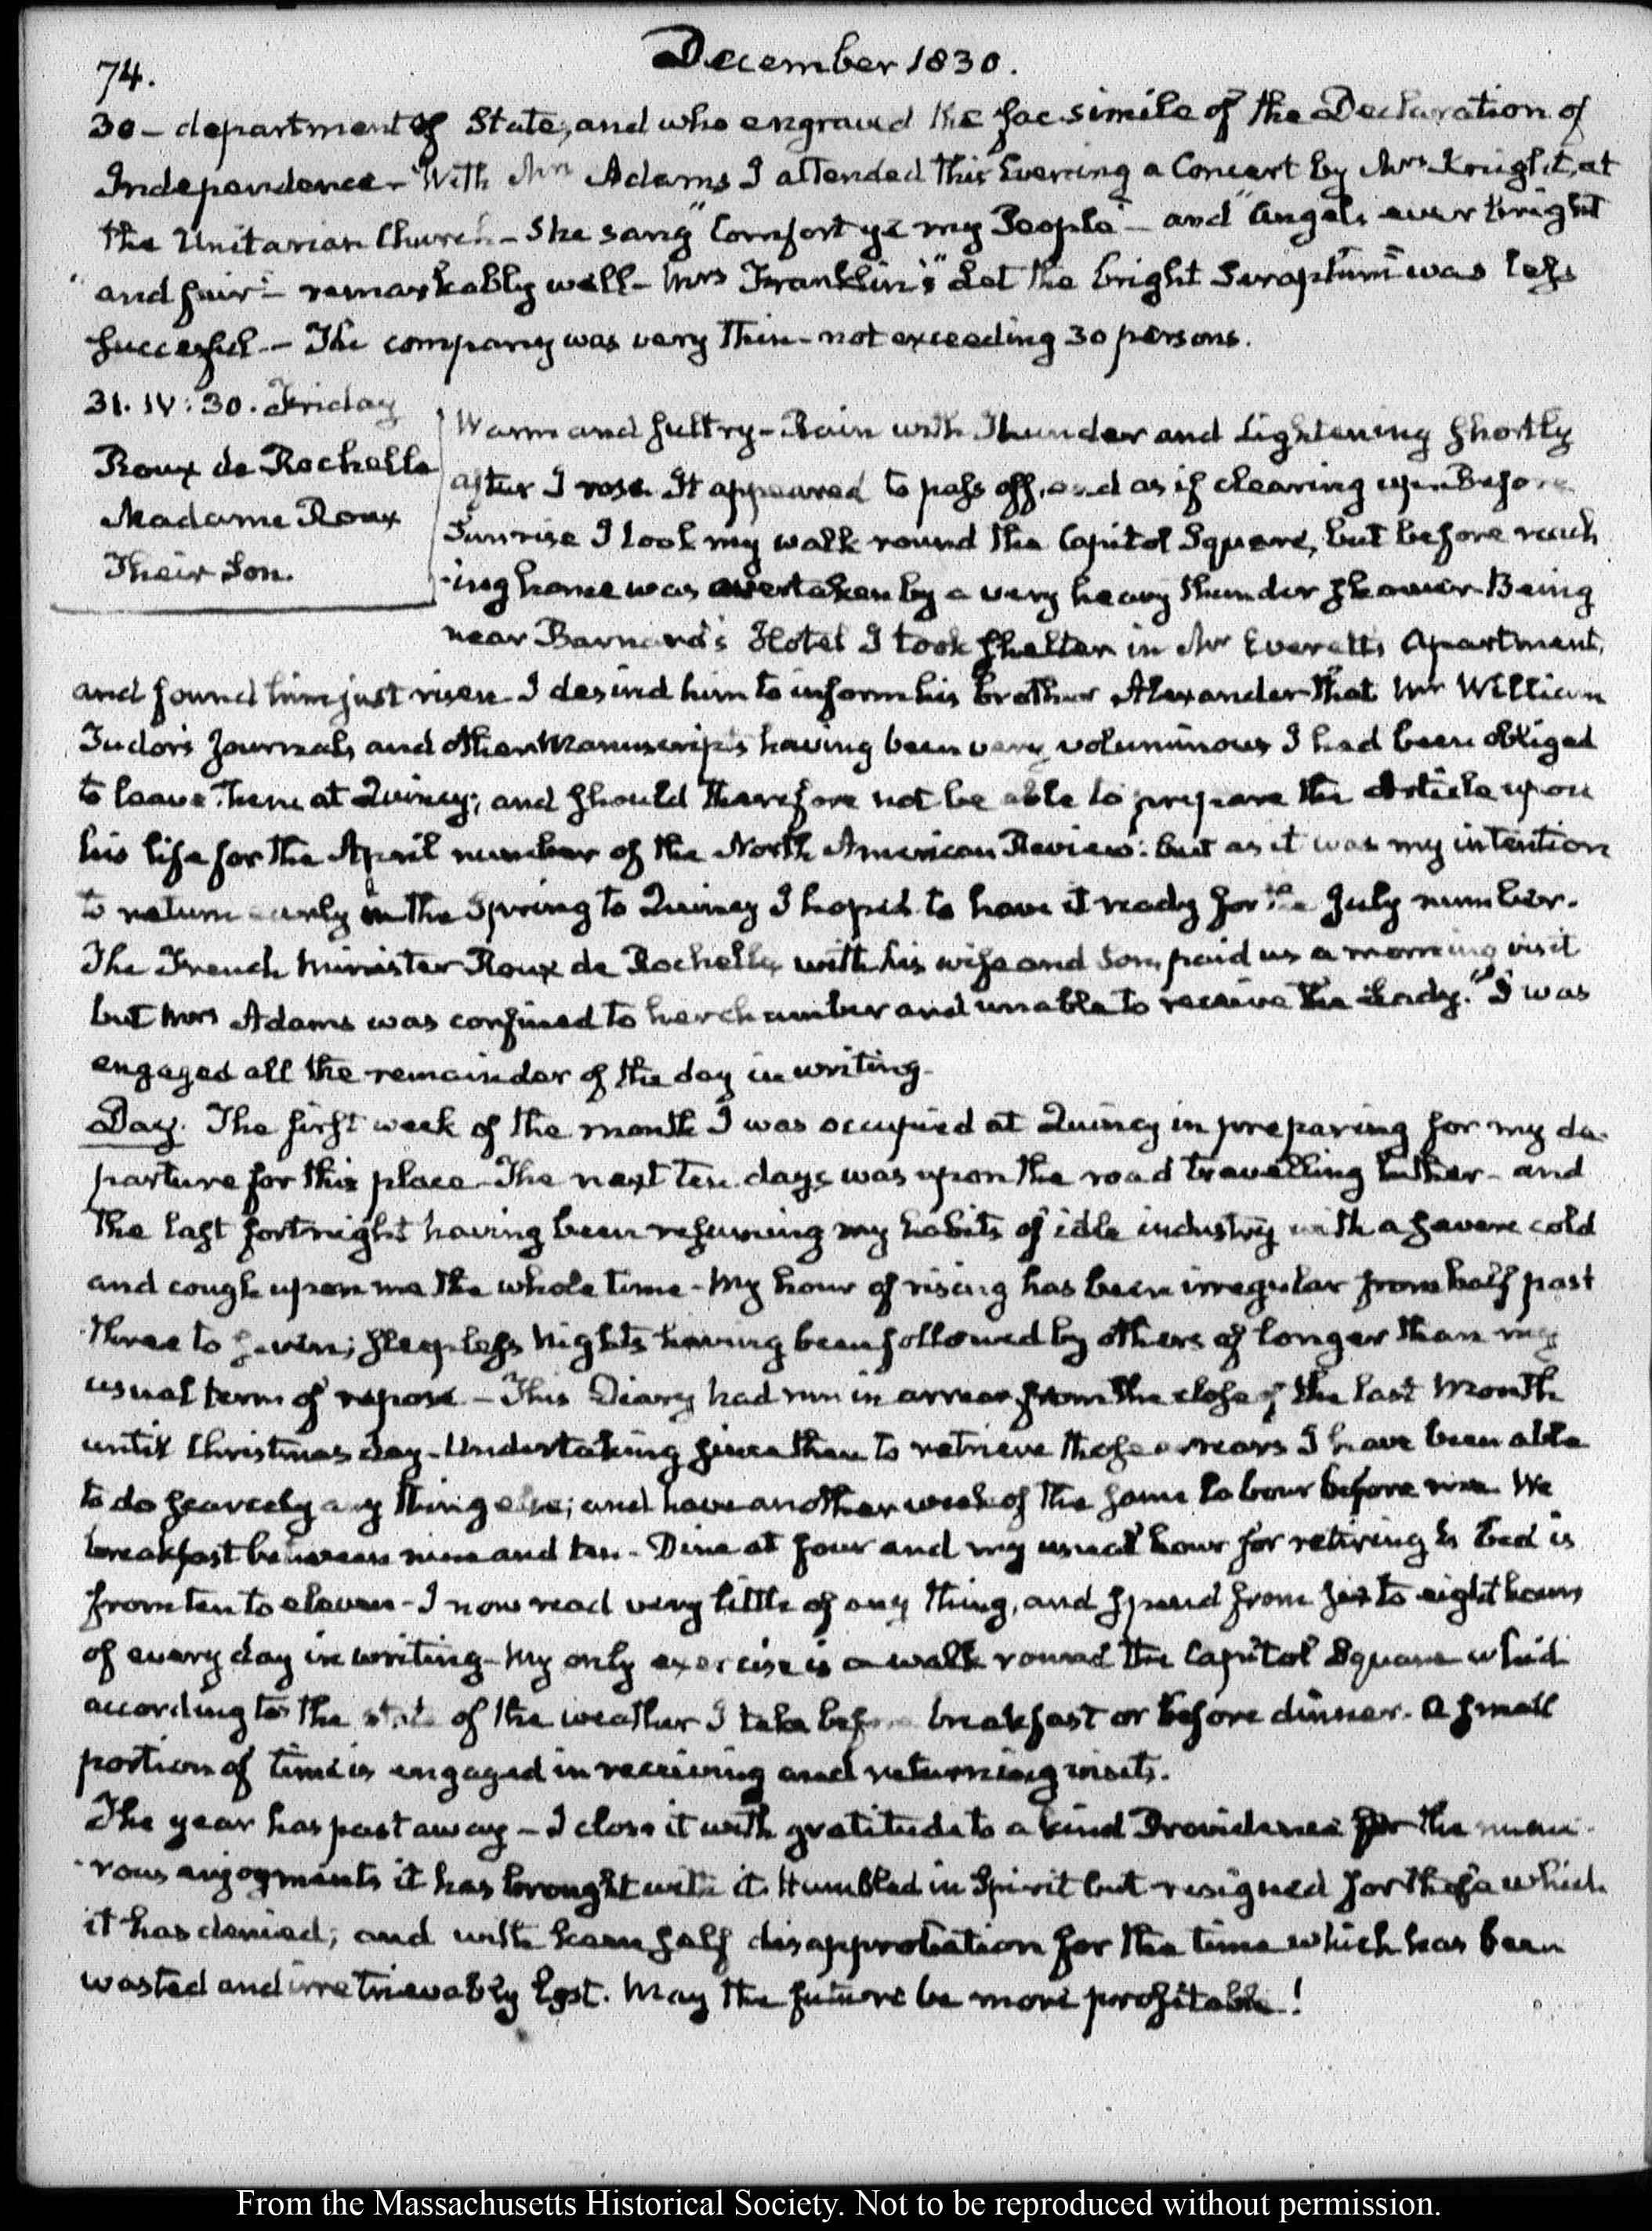 74.
December 1830.
30 – department of State, and who engraved the facsimile of the Declaration of
Independence – With Mrs Adams I attended this Evening a Concert by Mrs Knight, at
the Unitarian Church – She sang "Comfort ye my People" – and "Angels ever bright
"and fair" – remarkably well – Mrs Franklin's "Let the bright Seraphim" was less
successful – The company was very thin – not exceeding 30 persons.
31. IV:30. Friday
Roux de Rochelle
Madame Roux
Their Son.
Warm and sultry – Rain with Thunder and Lightening shortly
after I rose. It appeared to pass off, and as if clearing up. Before
Sunrise I took my walk round the Capitol Square, but before reach
-ing home was overtaken by a very heavy thunder shower. Being
near Barnard's Hotel I took shelter in Mr Everett's apartment,
and found him just risen. I desired him to inform his brother Alexander that Mr William
Tudor's Journals and other Manuscripts having been very voluminous I had been obliged
to leave them at Quincy; and should therefore not be able to prepare the Article upon
his life for the April number of the North American Review: but as it was my intention
to return early in the Spring to Quincy I hoped to have it ready for the July number.
The French Minister Roux de Rochelle, with his wife and Son, paid us a morning visit
but Mrs Adams was confined to her chamber and unable to receive the Lady. I was
engaged all the remainder of the day in writing.
Day. The first week of the month I was occupied at Quincy in preparing for my de-
parture for this place. The next ten days was upon the road travelling hither – and
the last fortnight having been resuming my habits of idle industry with a severe cold
and cough upon me the whole time – My hour of rising has been irregular from half past
three to seven; sleepless nights having been followed by others of longer than my
usual term of repose – This Diary had run in arrear from the close of the last Month
until Christmas day – Undertaking since then to retrieve those arrears I have been able
to do scarcely any thing else; and have another week of the same labour before me. We
breakfast between nine and ten – Dine at four and my usual hour for retiring to bed is
from ten to eleven – I now read very little of any thing, and spend from six to eight hours
of every day in writing – My only exercise is a walk round the Capitol Square which
according to the state of the weather I take before breakfast or before dinner. A small
portion of time is engaged in receiving and returning visits.
The year has past away – I close it with gratitude to a kind Providence for the nume-
-rous enjoyments it has brought with it. Humbled in Spirit but resigned for those which
it has denied; and with keen self disapprobation for the time which has been
wasted and irretrievably lost. May the future be more profitable!
From the Massachusetts Historical Society. Not to be reproduced without permission.